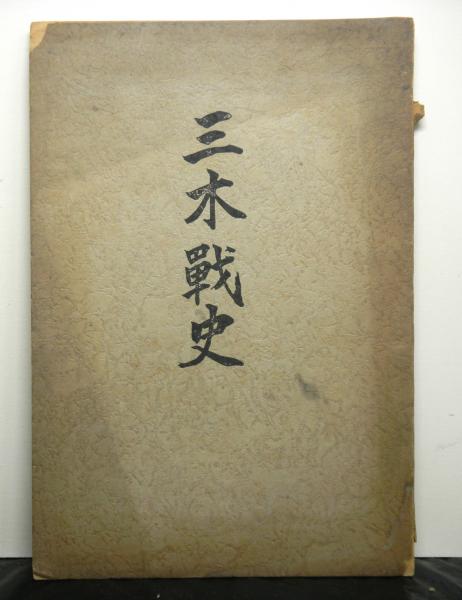 三木戰史